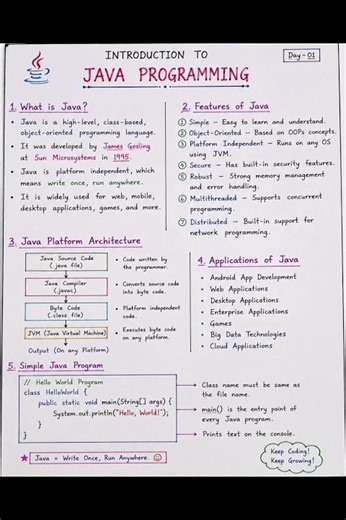 INTRODUCTION TO
Day - 01
JAVA PROGRAMMING
1. What is Java?
• Java is a high-level, class-based,
object-oriented programming language.
• It was developed by James Gosling
at Sun Microsystems in 1995.
• Java is platform independent, which
means write once, run anywhere.
• It is widely used for web, mobile,
desktop applications, games, and more.
2. Features of Java
① Simple – Easy to learn and understand.
② Object-Oriented – Based on OOPs concepts.
③ Platform Independent – Runs on any OS
using JVM.
④ Secure – Has built-in security features.
⑤ Robust – Strong memory management
and error handling.
⑥ Multithreaded – Supports concurrent
programming.
⑦ Distributed – Built-in support for
network programming.
3. Java Platform Architecture
Java Source Code
(.java file)
• Code written by
the programmer.
Java Compiler
(javac)
• Converts source code
into byte code.
Byte Code
(.class file)
• Platform independent
code.
JVM (Java Virtual Machine)
• Executes byte code
on any platform.
Output (On any Platform)
4. Applications of Java
• Android App Development
• Web Applications
• Desktop Applications
• Enterprise Applications
• Games
• Big Data Technologies
• Cloud Applications
5. Simple Java Program
// Hello World Program
class HelloWorld {
public static void main(String[] args) {
System.out.println("Hello, World!");
}
}
Class name must be same as
the file name.
main() is the entry point of
every Java program.
Prints text on the console.
★ Java = Write Once, Run Anywhere. ☺
Keep Coding!
Keep Growing!